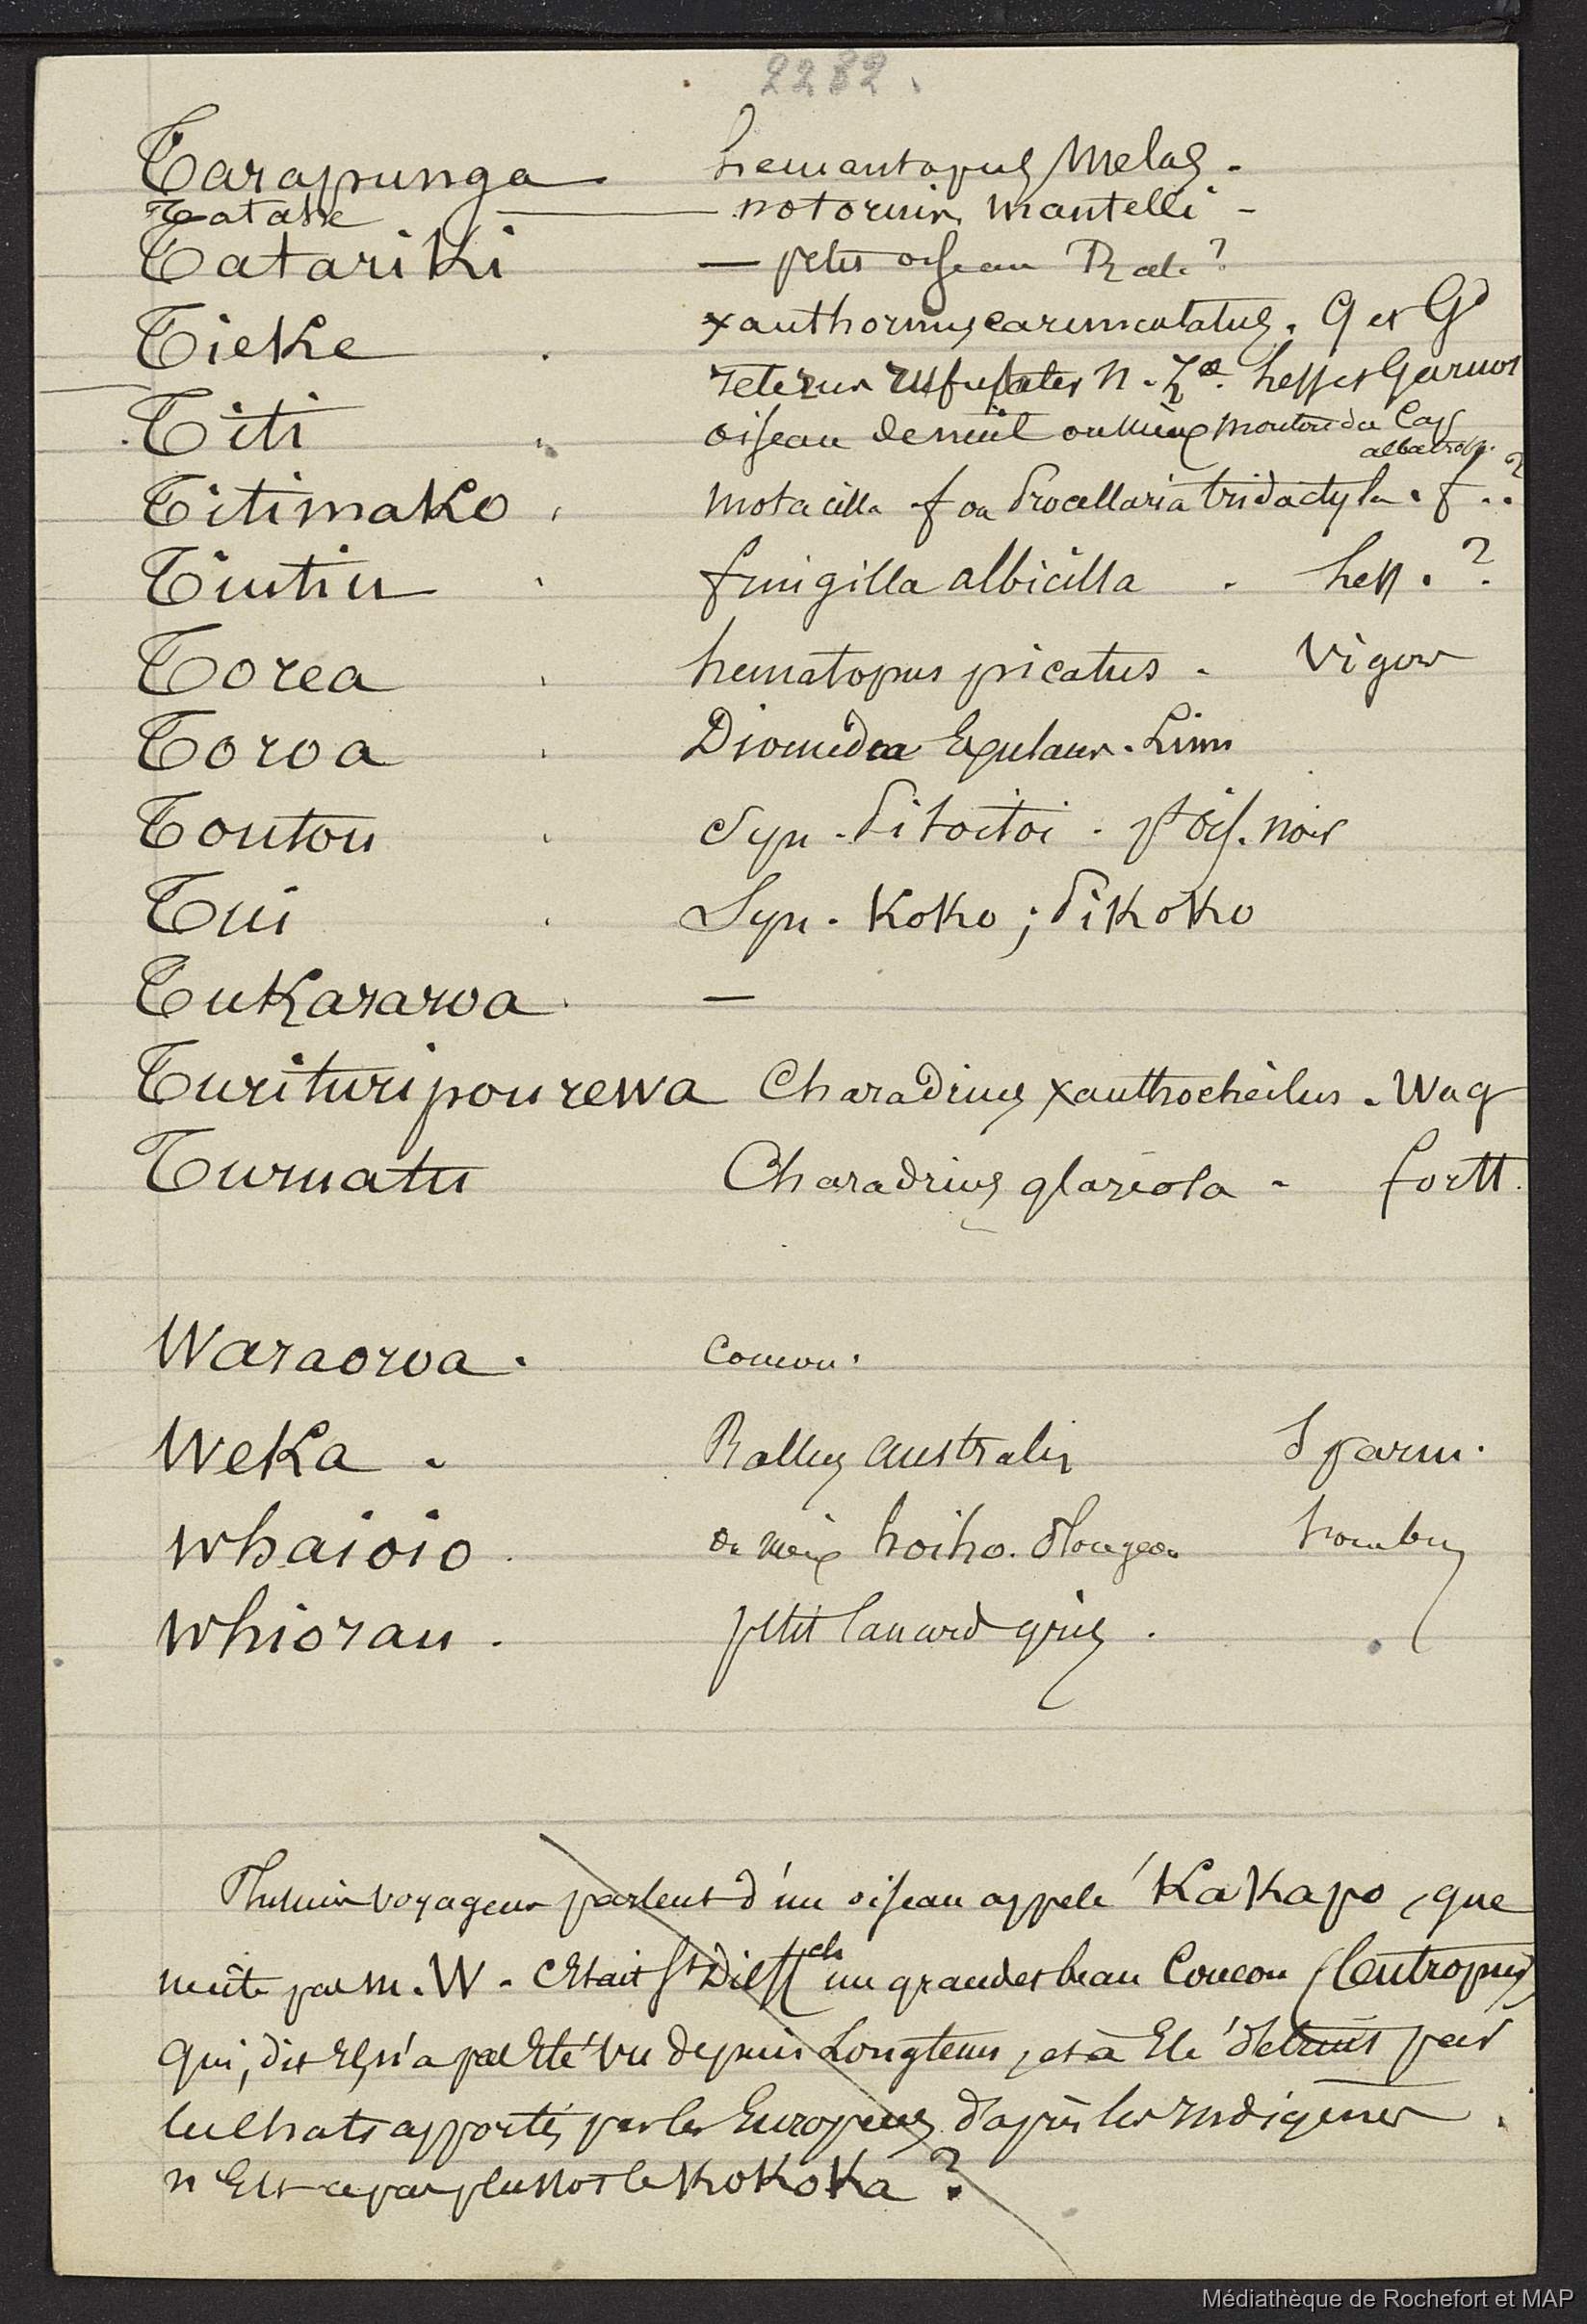 2282.
Tarapunga. hemantopus Melas.
Tatahe — notornis Mantelli -
Tatariki — petit oiseau Rale ?
Tieke . xanthornus carunculatus. Q et Gd
Icterus rufusater N. Zde. Less et Garnot
Titi oiseau de nuit ou mieux mouton du Cap
albatros.
Titimako . motacilla f ou Procellaria tridactyla. f..?
Tiutiu . fringilla albicilla . Less. ?
Torea . hematopus picatus . Vigors
Toroa . Diomedea Exulans. Linn
Toutou . Syn. Pitoitoi . pt ois. noir
Tui . Syn. Koko ; Pikoko
Tukararoa . —
Turituripourewa Charadrius xanthocheilus . Wag
Turuatu Charadrius glareola - forst.
Waraoroa . Coucou.
Weka . Rallus australis Sparm.
Whaioio . ou mieux hoiho. Plongeon hombr
Whiorau . petit Canard gris .
Plusieurs voyageurs parlent d'un oiseau appelé Kakapo, que
par M. W. C'était st Dieffch un grand et beau Coucou (Centropus)
qui, dit il, n'a pas été vu depuis Longtems, et a Eté détruit par
les Chats apportés par les Européens d'après les Indigènes.
n'Est ce pas plustot le KoKoKa ?
Médiathèque de Rochefort et MAP